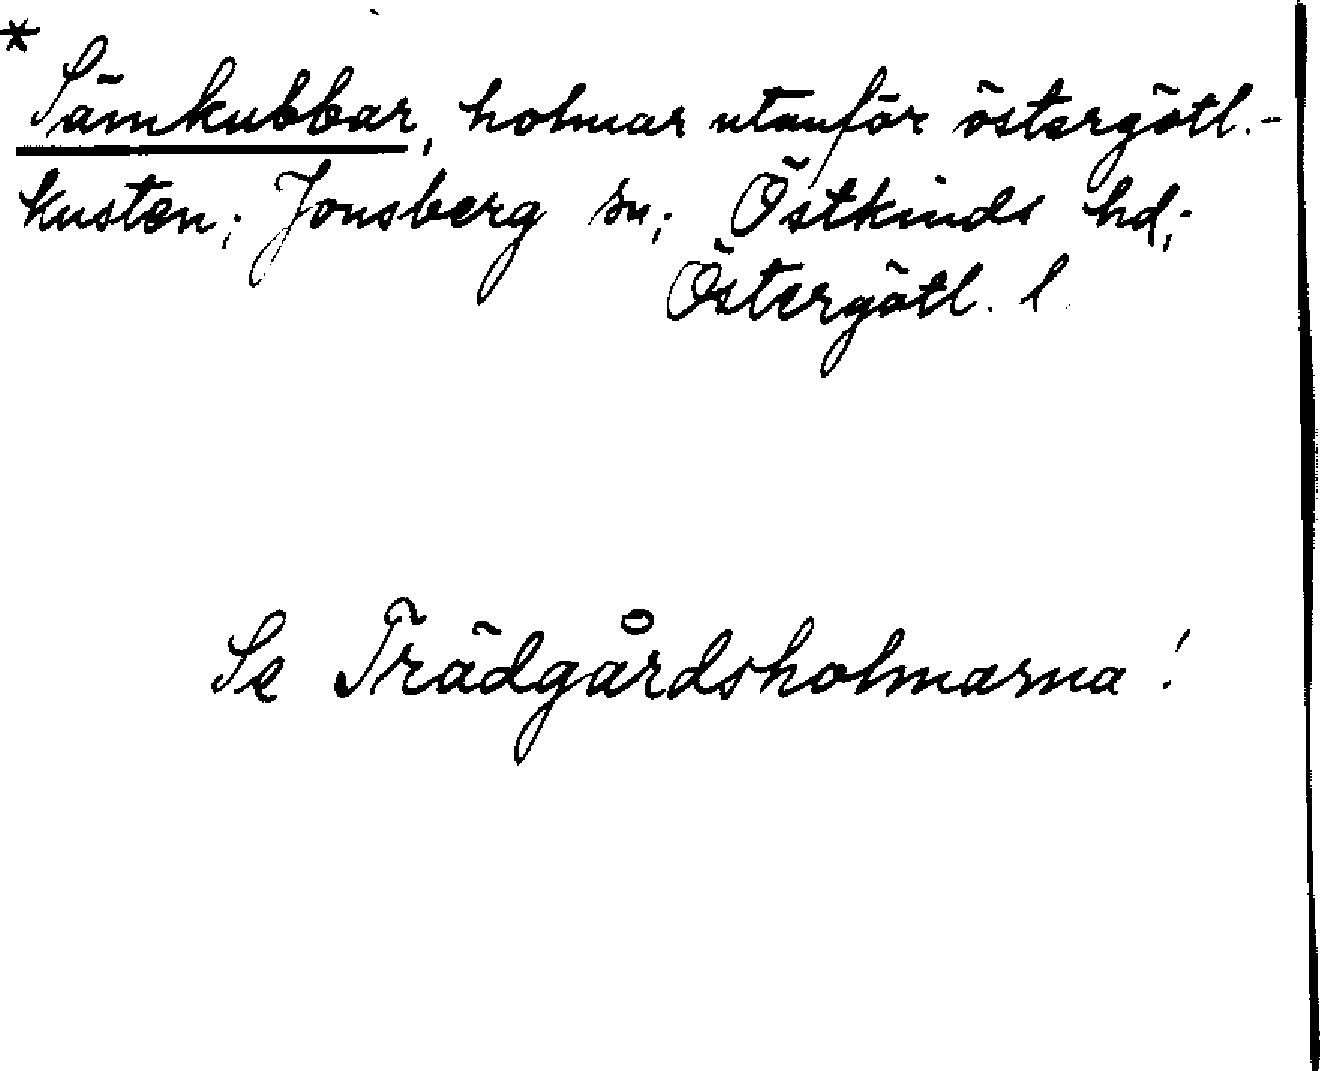 * Sämkubbar, holmar utanför östergötl.-
kusten; Jonsberg sn; Östkinds hd;
Östergötl. l.
Se Trädgårdsholmarna!